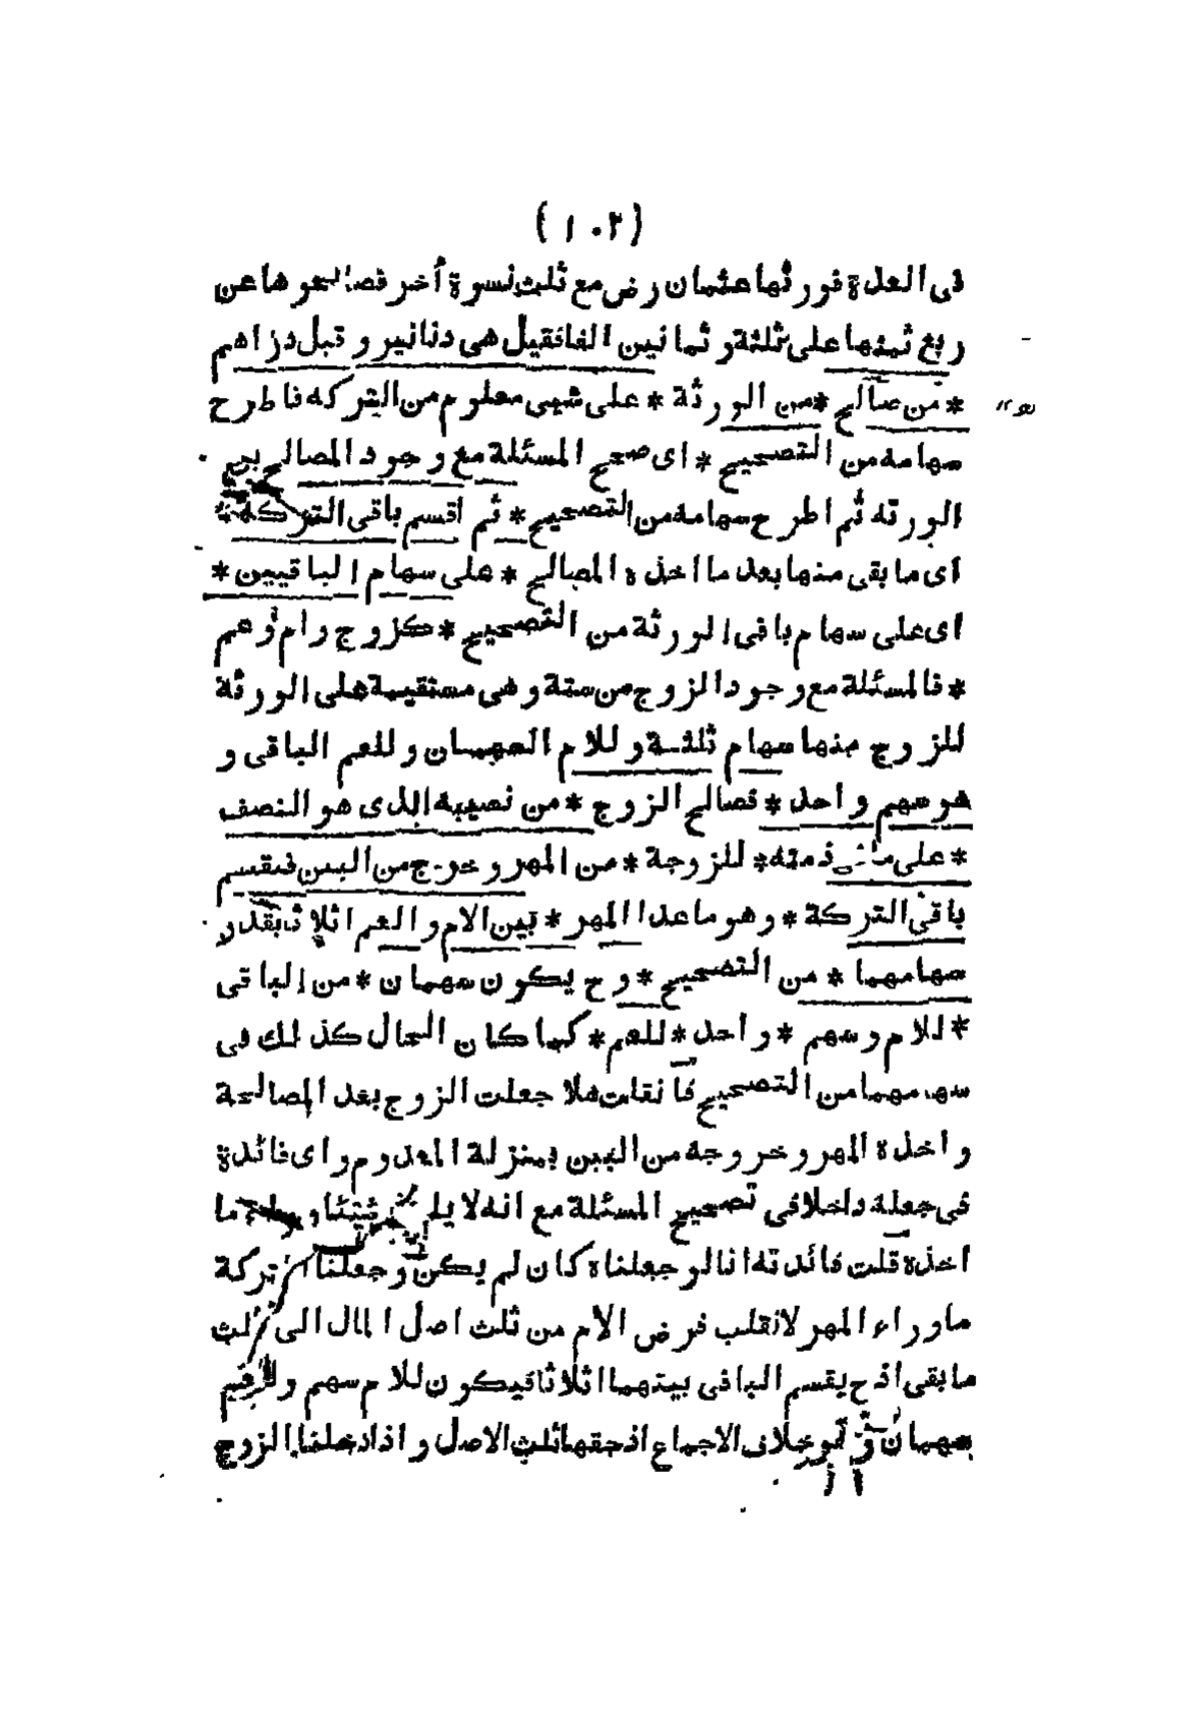 (١٠٢)
فى العدة فورثها عثمان رض مع ثلث نسوة أخر فصالحوها عن
ربع ثمنها على ثلثة و ثمانين الفا فقيل هى دنانير و قيل دراهم
* من صالح * من الورثة * على شيى معلوم من التركه فاطرح
سهامه من التصحيح * اى صحح المسئلة مع وجود المصالح بين
الورثه ثم اطرح سهامه من التصحيح * ثم اقسم باقى التركة *
اى ما بقى منها بعد ما اخذه المصالح * على سهام الباقيين *
اى على سهام باقى الورثة من التصحيح * كزوج و ام و عم
* فالمسئلة مع وجود الزوج من ستة و هى مستقيمة على الورثة
للزوج منها سهام ثلثة و للام السهمان و للعم الباقى و
هو سهم و احد * فصالح الزوج * من نصيبه الذى هو النصف
* على ما فى ذمته * للزوجة * من المهر و خرج من البين فيقسم
باقى التركة * و هو ما عدا المهر * بين الام و العم اثلاثا بقدر
سهامهما * من التصحيح * و ح يكون سهمان * من الباقى
* للام و سهم * و احد * للعم * كما كان الحال كذلك فى
سهامهما من التصحيح فانقلت هلا جعلت الزوج بعد المصالحة
و اخذه المهر و خروجه من البين بمنزلة المعدوم و اى فائدة
فى جعله داخلا فى تصحيح المسئلة مع انه لا ياخذ شيئا وراء ما
اخذه قلت فائدته انا لو جعلناه كان لم يكن و جعلنا التركة
ما وراء المهر لانقلب فرض الام من ثلث اصل المال الى ثلث
ما بقى اذ ح يقسم الباقى بينهما اثلاثا فيكون للام سهم و للعم
سهمان و هو خلاف الاجماع اذ حقها ثلث الاصل و اذا ادخلنا الزوج